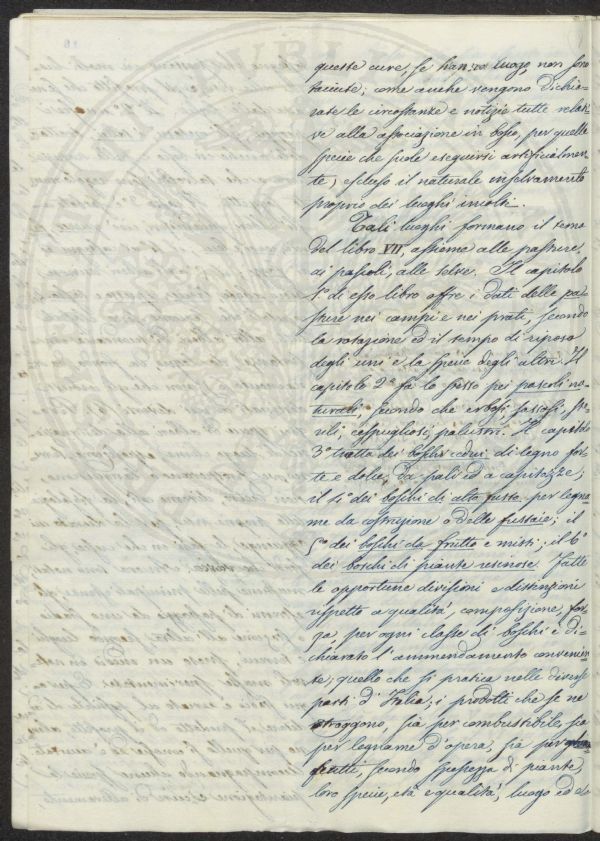 queste cure, se hanno luogo, non sono
taciute; come anche vengono dichia-
rate le circostanze e notizie tutte relati-
ve alla associazione in bosco, per quelle
specie che suole eseguirsi artificialmen-
te, escluso il naturale inselvamento
proprio dei luoghi incolti.
Tali luoghi formano il tema
del libro VII, assieme alle pasture,
ai pascoli, alle selve. Il capitolo
1º di esso libro offre i dati delle pa-
sture nei campi e nei prati, secondo
la rotazione ed il tempo di riposo
degli uni e la specie degli altri. Il
capitolo 2º fa lo stesso pei pascoli na-
turali, secondo che erbosi, sassosi, ste-
rili, cespugliosi, palustri. Il capitolo
3º tratta dei boschi cedui di legno for-
te e dolce, da pali ed a capitozze;
il 4º dei boschi di alto fusto per legna-
me da costruzione o delle fustaie; il
5º dei boschi da frutto e misti; il 6º
dei boschi di piante resinose. Fatte
le opportune divisioni e distinzioni
rispetto a qualità, composizione, for-
za, per ogni classe di boschi è di-
chiarato l'ammendamento convenien-
te; quello che si pratica nelle diverse
parti d'Italia; i prodotti che se ne
traggono, sia per combustibile, sia
per legname d'opera, sia per
frutti, secondo spessezza di piante,
loro specie, età e qualità, luogo ed e-